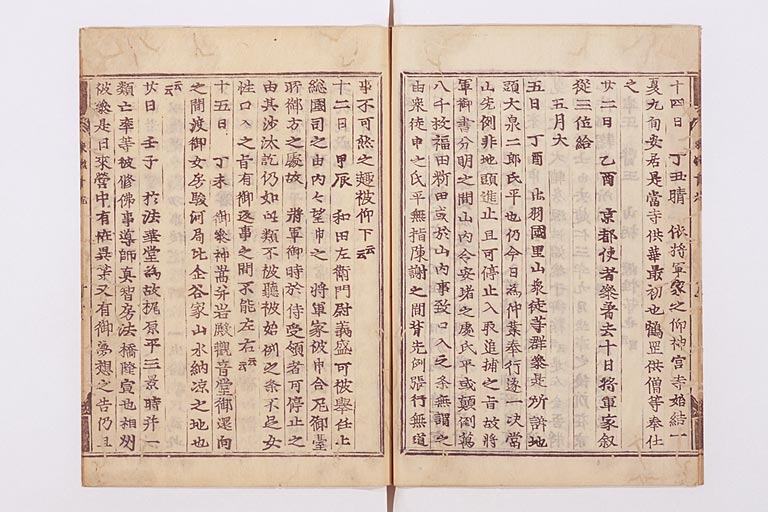 十四日　丁丑晴　依将軍家之仰神宮寺始結一
夏九旬安居是當寺供華最初也鶴罡供僧等奉仕
之
廿二日　乙酉　京都使者參着去十日將軍家叙
從三位給
五月大
五日　丁酉　出羽國黒山衆徒等群參是所訴地
頭大泉二郎氏平也仍今日為仲業奉行遂一决當
山先例非地頭進止且可停止入部追捕之旨故將
軍御書分明之間山内令安堵之處氏平或顛倒萬
八千枚福田粁田或於山内事致口入之条無謂之
由衆徒申之氏平無指陳謝之間背先例張行無道
事不可然之趣被仰下云云
十二日　甲辰　和田左衛門尉義盛可被舉任上
総國司之由内々望申之　將軍家被申合尼御臺
所御方之處故　將軍御時於侍受領者可停止之
由其沙汰訖仍如此類不被聽被始例之条不足女
性口入之旨有御返事之間不能左右云云
十五日　丁未　御參神嵩并岩殿觀音堂御還向
之間渡御女房駿河局比企谷家山水納凉之地也
云云
廿日　壬子　於法華堂為故梶原平三景時并一
類亡卒等被修佛事導師真智房法橋隆宣也相州
被參是日來營中有恠異等又有御夢想之告仍且